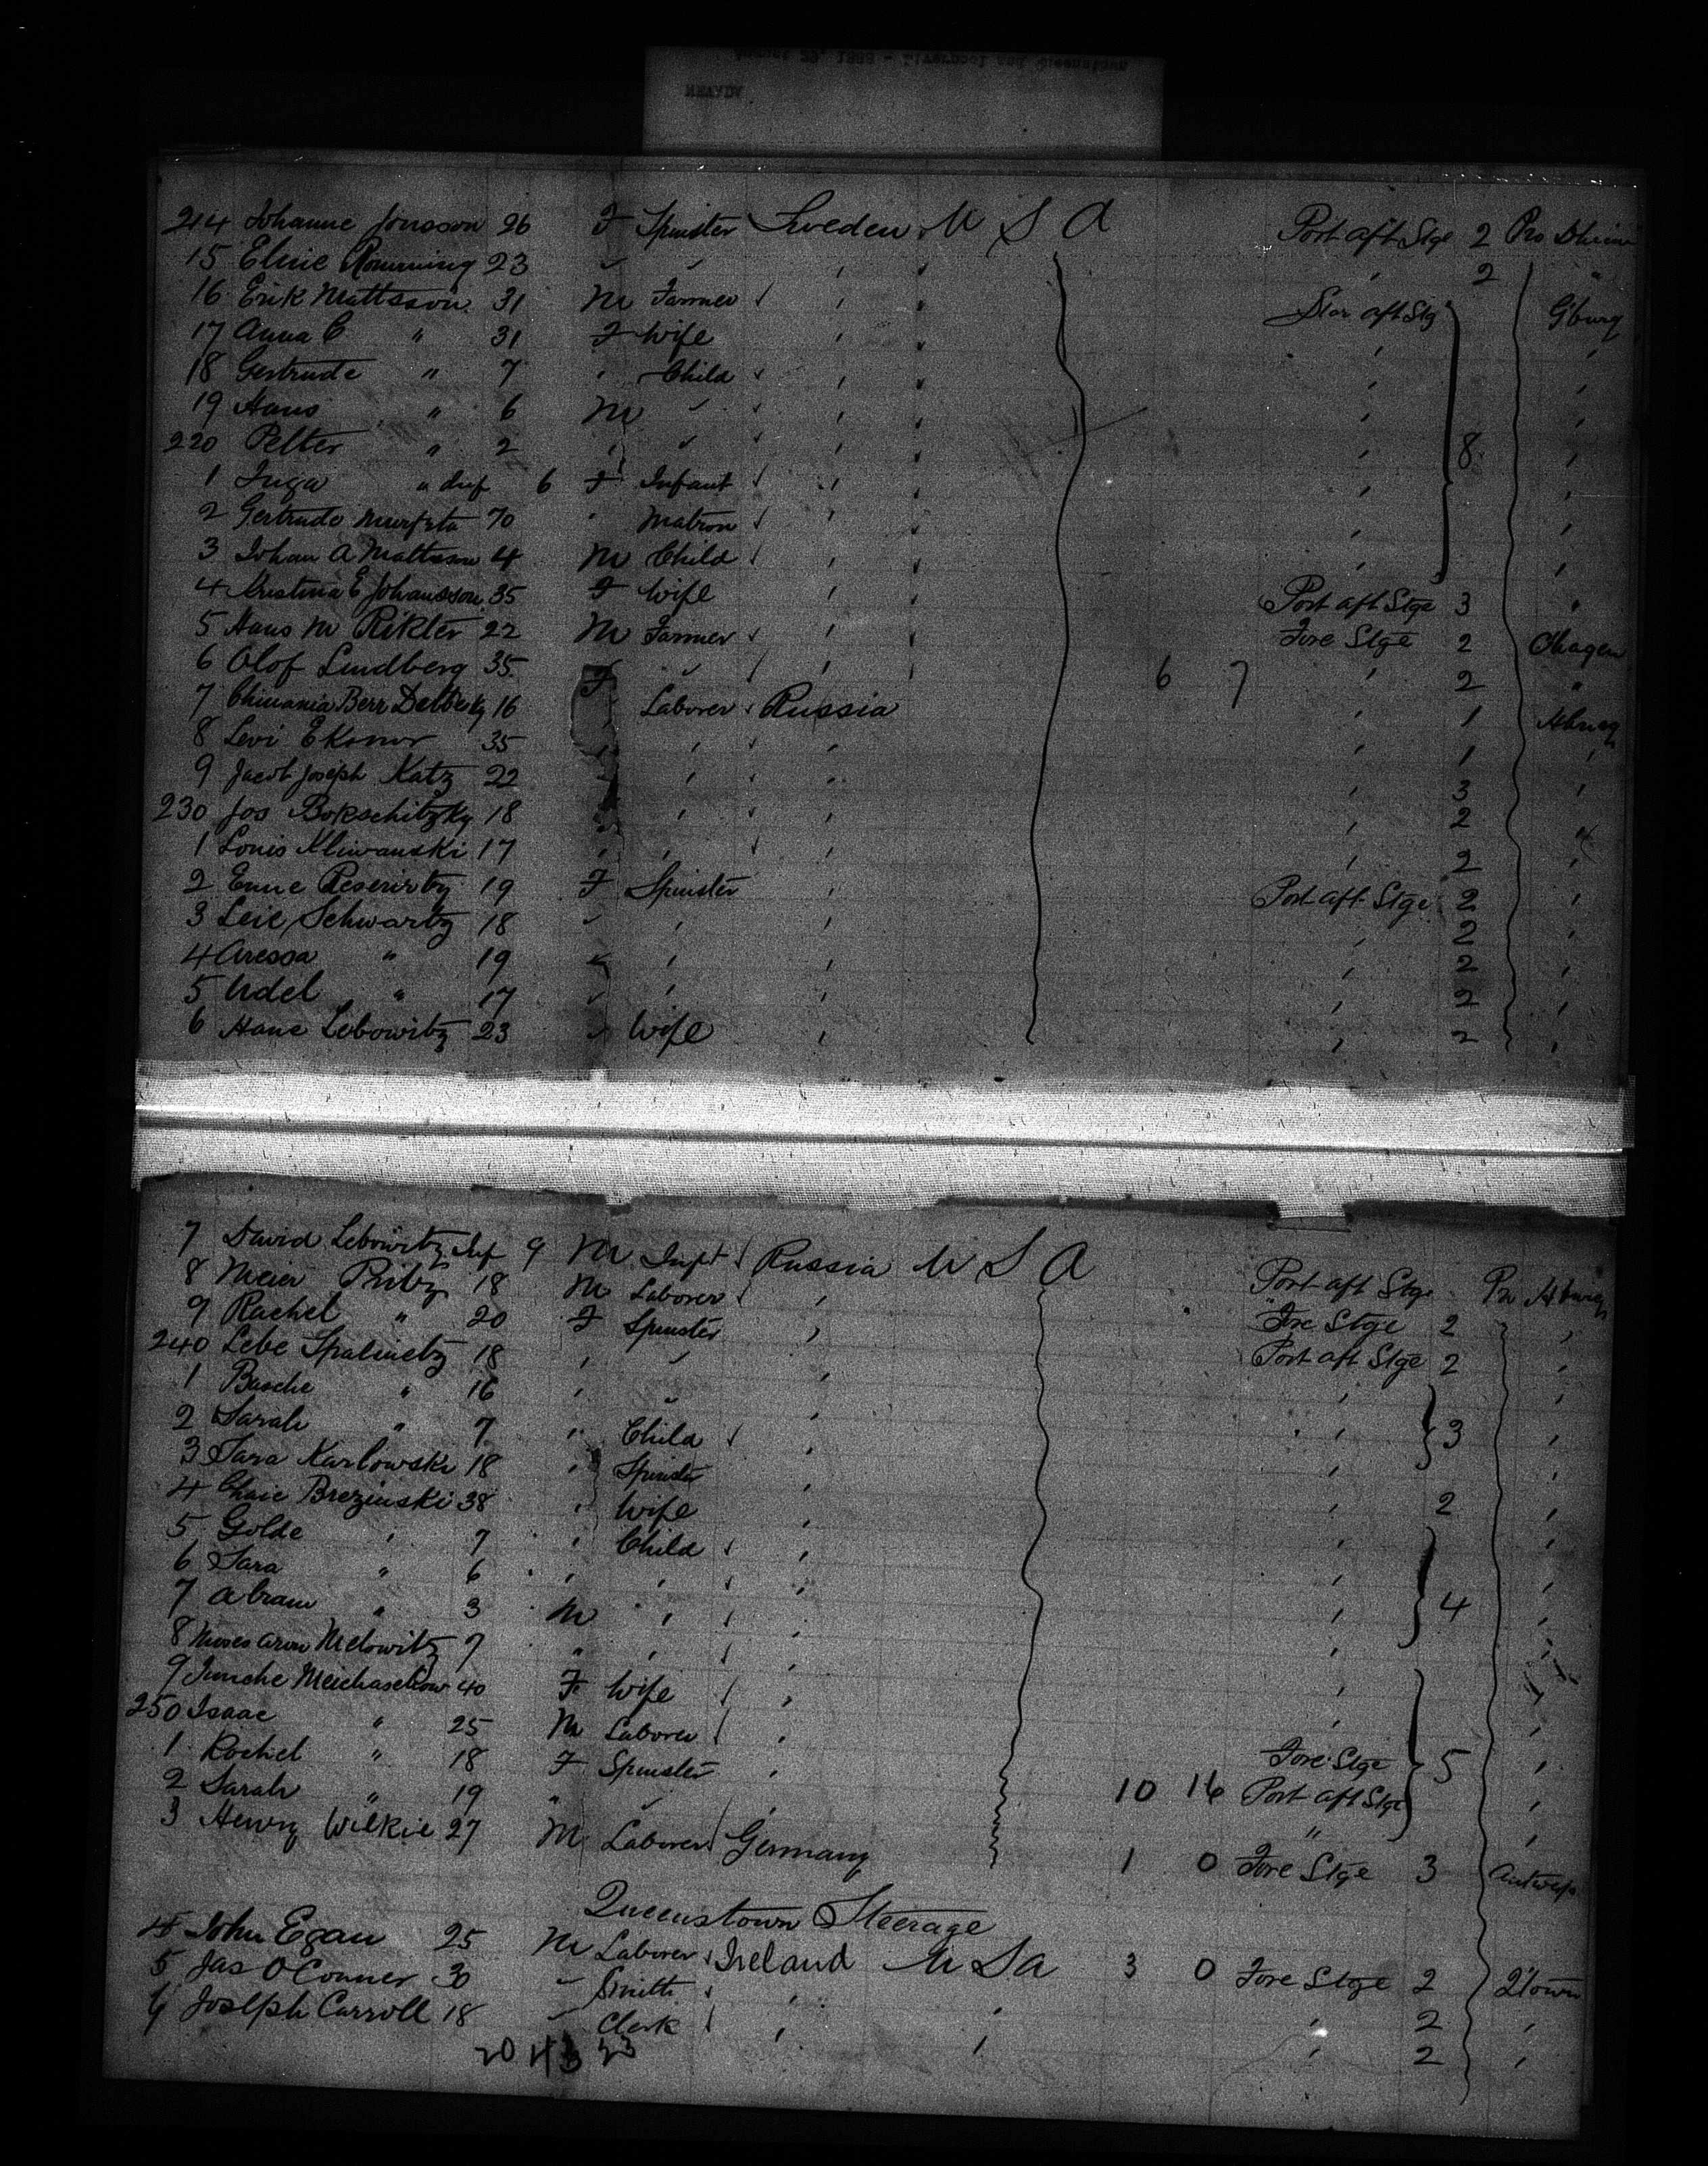 214 Johanne Jonsson 26 F Spinster Sweden U S A Port aft Stge 2
15 Elme 23 " " ' ' ' 2 "
16 Erik Mattsson 31 M Farmer ' ' Star aft Stg G'burg
17 Anna C " 31 F Wife ' ' ' '
18 Gertrude " 7 ' Child ' ' ' '
19 Hans " 6 M " ' ' ' '
220 Petter " 2 ' " ' ' ' 8 '
1 Inga " Inf 6 F Infant ' ' ' '
2 Gertrude 70 ' Matron ' ' ' '
3 Johan A Mattsson 4 M Child ' ' ' '
4 Kristina E Johansson 35 F Wife ' ' Port aft Stge 3 "
5 Hans M Rikter 22 M Farmer ' ' Fore Stge 2 Chagen
6 Olof Lindberg 35 " ' ' 6 7 ' 2 "
7 Berr 16 F Laborer Russia ' 1 Hburg
8 Levi Ekonor 35 ' ' ' ' 1 '
9 Jacob Joseph Katz 22 ' ' ' 3 '
230 Jos Bokschitzky 18 ' ' ' ' 2 "
1 Louis Kliwanski 17 ' ' ' ' 2 '
2 Enne 19 F Spinster ' Port aft Stge 2 '
3 Leie Schwartz 18 " ' ' 2 '
4 Aressa " 19 " ' ' ' 2 '
5 Udel " 17 " ' ' ' 2 '
6 Hane Lebowitz 23 " Wife ' ' 2 '
7 David Lebowitz Inf 9 M Inft Russia U S A Port aft Stge Hburg
8 Meier Pritz 18 M Laborer ' Fore Stge 2 '
9 Rachel " 20 F Spinster ' Port aft Stge 2 '
240 Lebe Spalinetz 18 ' " ' ' '
1 Basche " 16 ' " ' ' 3 '
2 Sarah " 7 " Child ' ' '
3 Sara Karlowski 18 ' Spinster ' ' 2 '
4 Chaie Brezinski 38 ' Wife ' '
5 Golde ' 7 ' Child ' ' '
6 Sara " 6 ' ' ' ' 4 '
7 Abram " 3 M ' ' '
8 Moses Aron Melowitz 7 " ' ' '
9 40 F Wife ' ' '
250 Isaac " 25 M Laborer ' Fore Stge 5 '
1 Rochel " 18 F Spinster ' 10 16 Port aft Stge '
2 Sarah " 19 " " ' " '
3 Henry Wilkie 27 M Laborer Germany 1 0 Fore Stge 3 Antwep
Queenstown Steerage
4 John Egan 25 M Laborer Ireland U S A 3 0 Fore Stge 2 Q'town
5 Jas O Conner 30 " Smith ' ' ' 2 '
6 Joseph Carroll 18 " Clerk ' ' ' 2 '
20 43 23